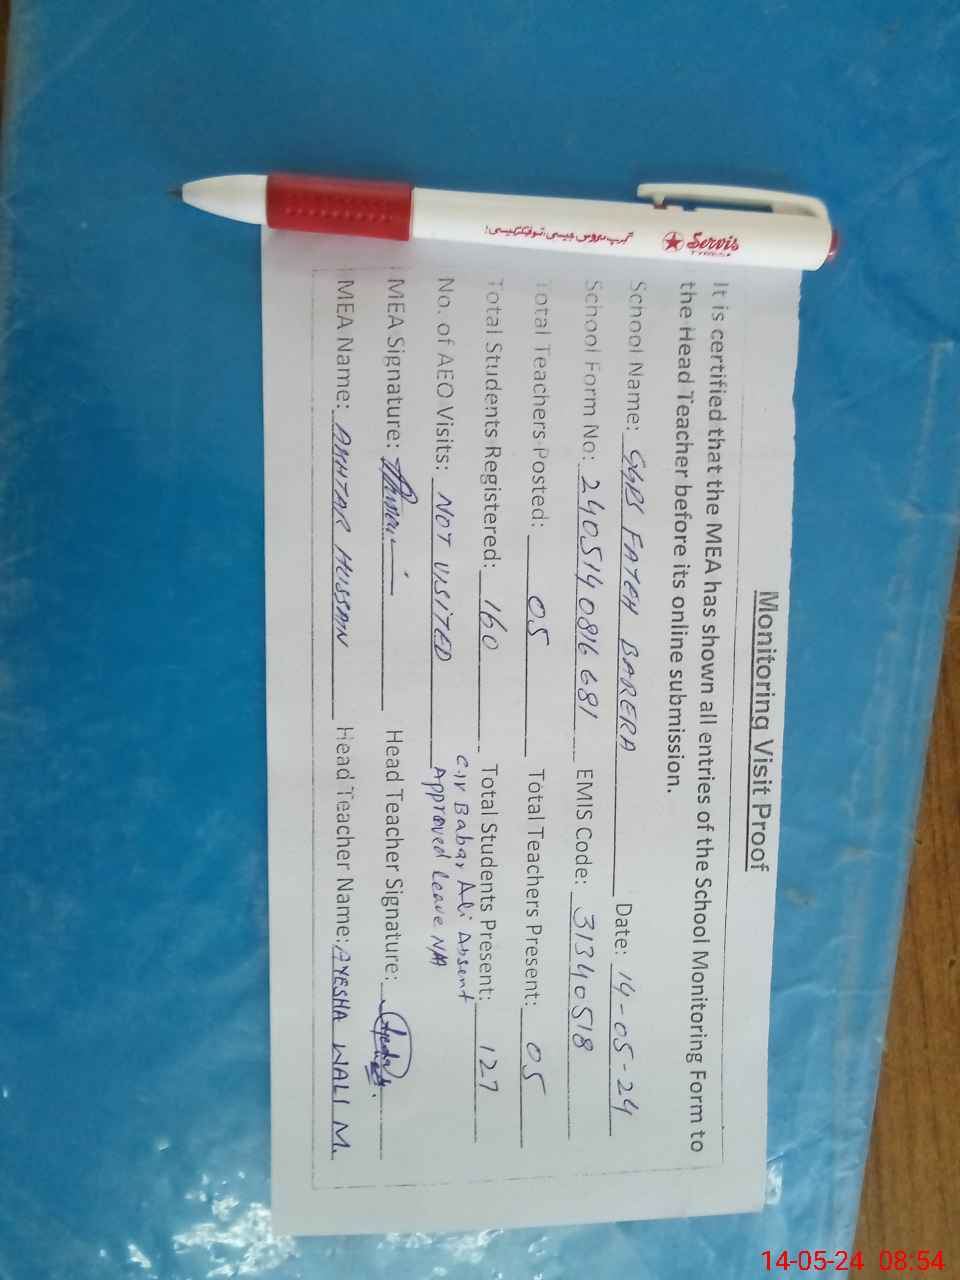 Monitoring Visit Proof
It is certified that the MEA has shown all entries of the School Monitoring Form to
the Head Teacher before its online submission.
School Name: GGPS FATEH BARERA Date: 14-05-24
School Form No: 2405140816681 EMIS Code: 31340518
Total Teachers Posted: 05 Total Teachers Present: 05
Total Students Registered: 160 Total Students Present: 127
C.IV Babar Ali Absent
No. of AEO Visits: NOT VISITED Approved Leave N/A
MEA Signature: Head Teacher Signature:
MEA Name: AKHTAR HUSSAIN Head Teacher Name: AYESHA WALI M.
Servis
14-05-24 08:54